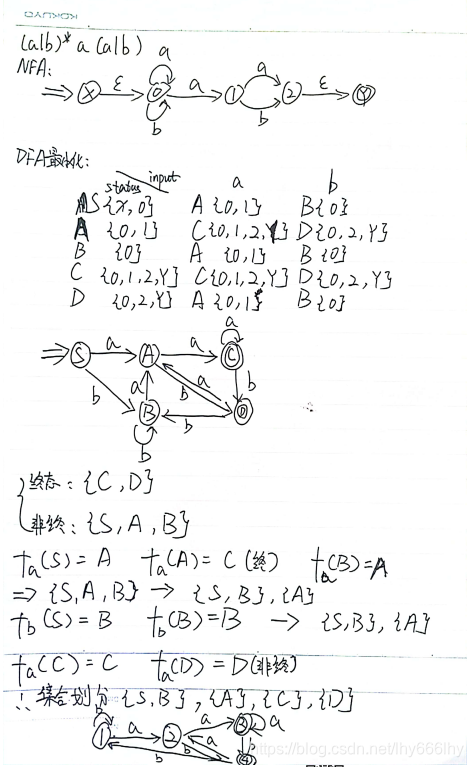 KOKUYO
(a|b)* a (a|b)
NFA:
a
⇒ X ε 0 a 1 a 2 ε Y
b b
DFA最小化:
status input a b
S {X,0} A {0,1} B {0}
A {0,1} C {0,1,2,Y} D {0,2,Y}
B {0} A {0,1} B {0}
C {0,1,2,Y} C {0,1,2,Y} D {0,2,Y}
D {0,2,Y} A {0,1} B {0}
a
⇒ S a A a C
b a b a b
B b D
b
终态: {C,D}
非终: {S,A,B}
fa(S)=A fa(A)=C(终) fa(B)=A
=> {S,A,B} → {S,B},{A}
fb(S)=B fb(B)=B → {S,B},{A}
fa(C)=C fa(D)=D(非终)
∴ 集合划分 {S,B},{A},{C},{D}
b
1 a 2 a 3 a
b b a b 4
https://blog.csdn.net/lhy666lhy